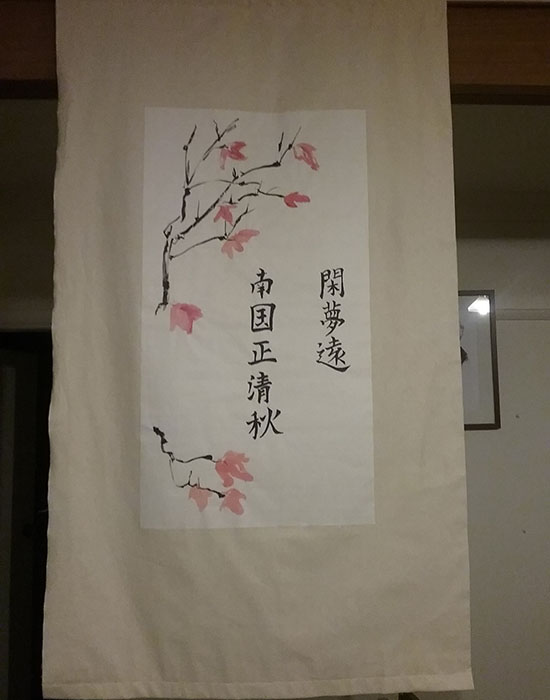 閑夢遠
南国正清秋